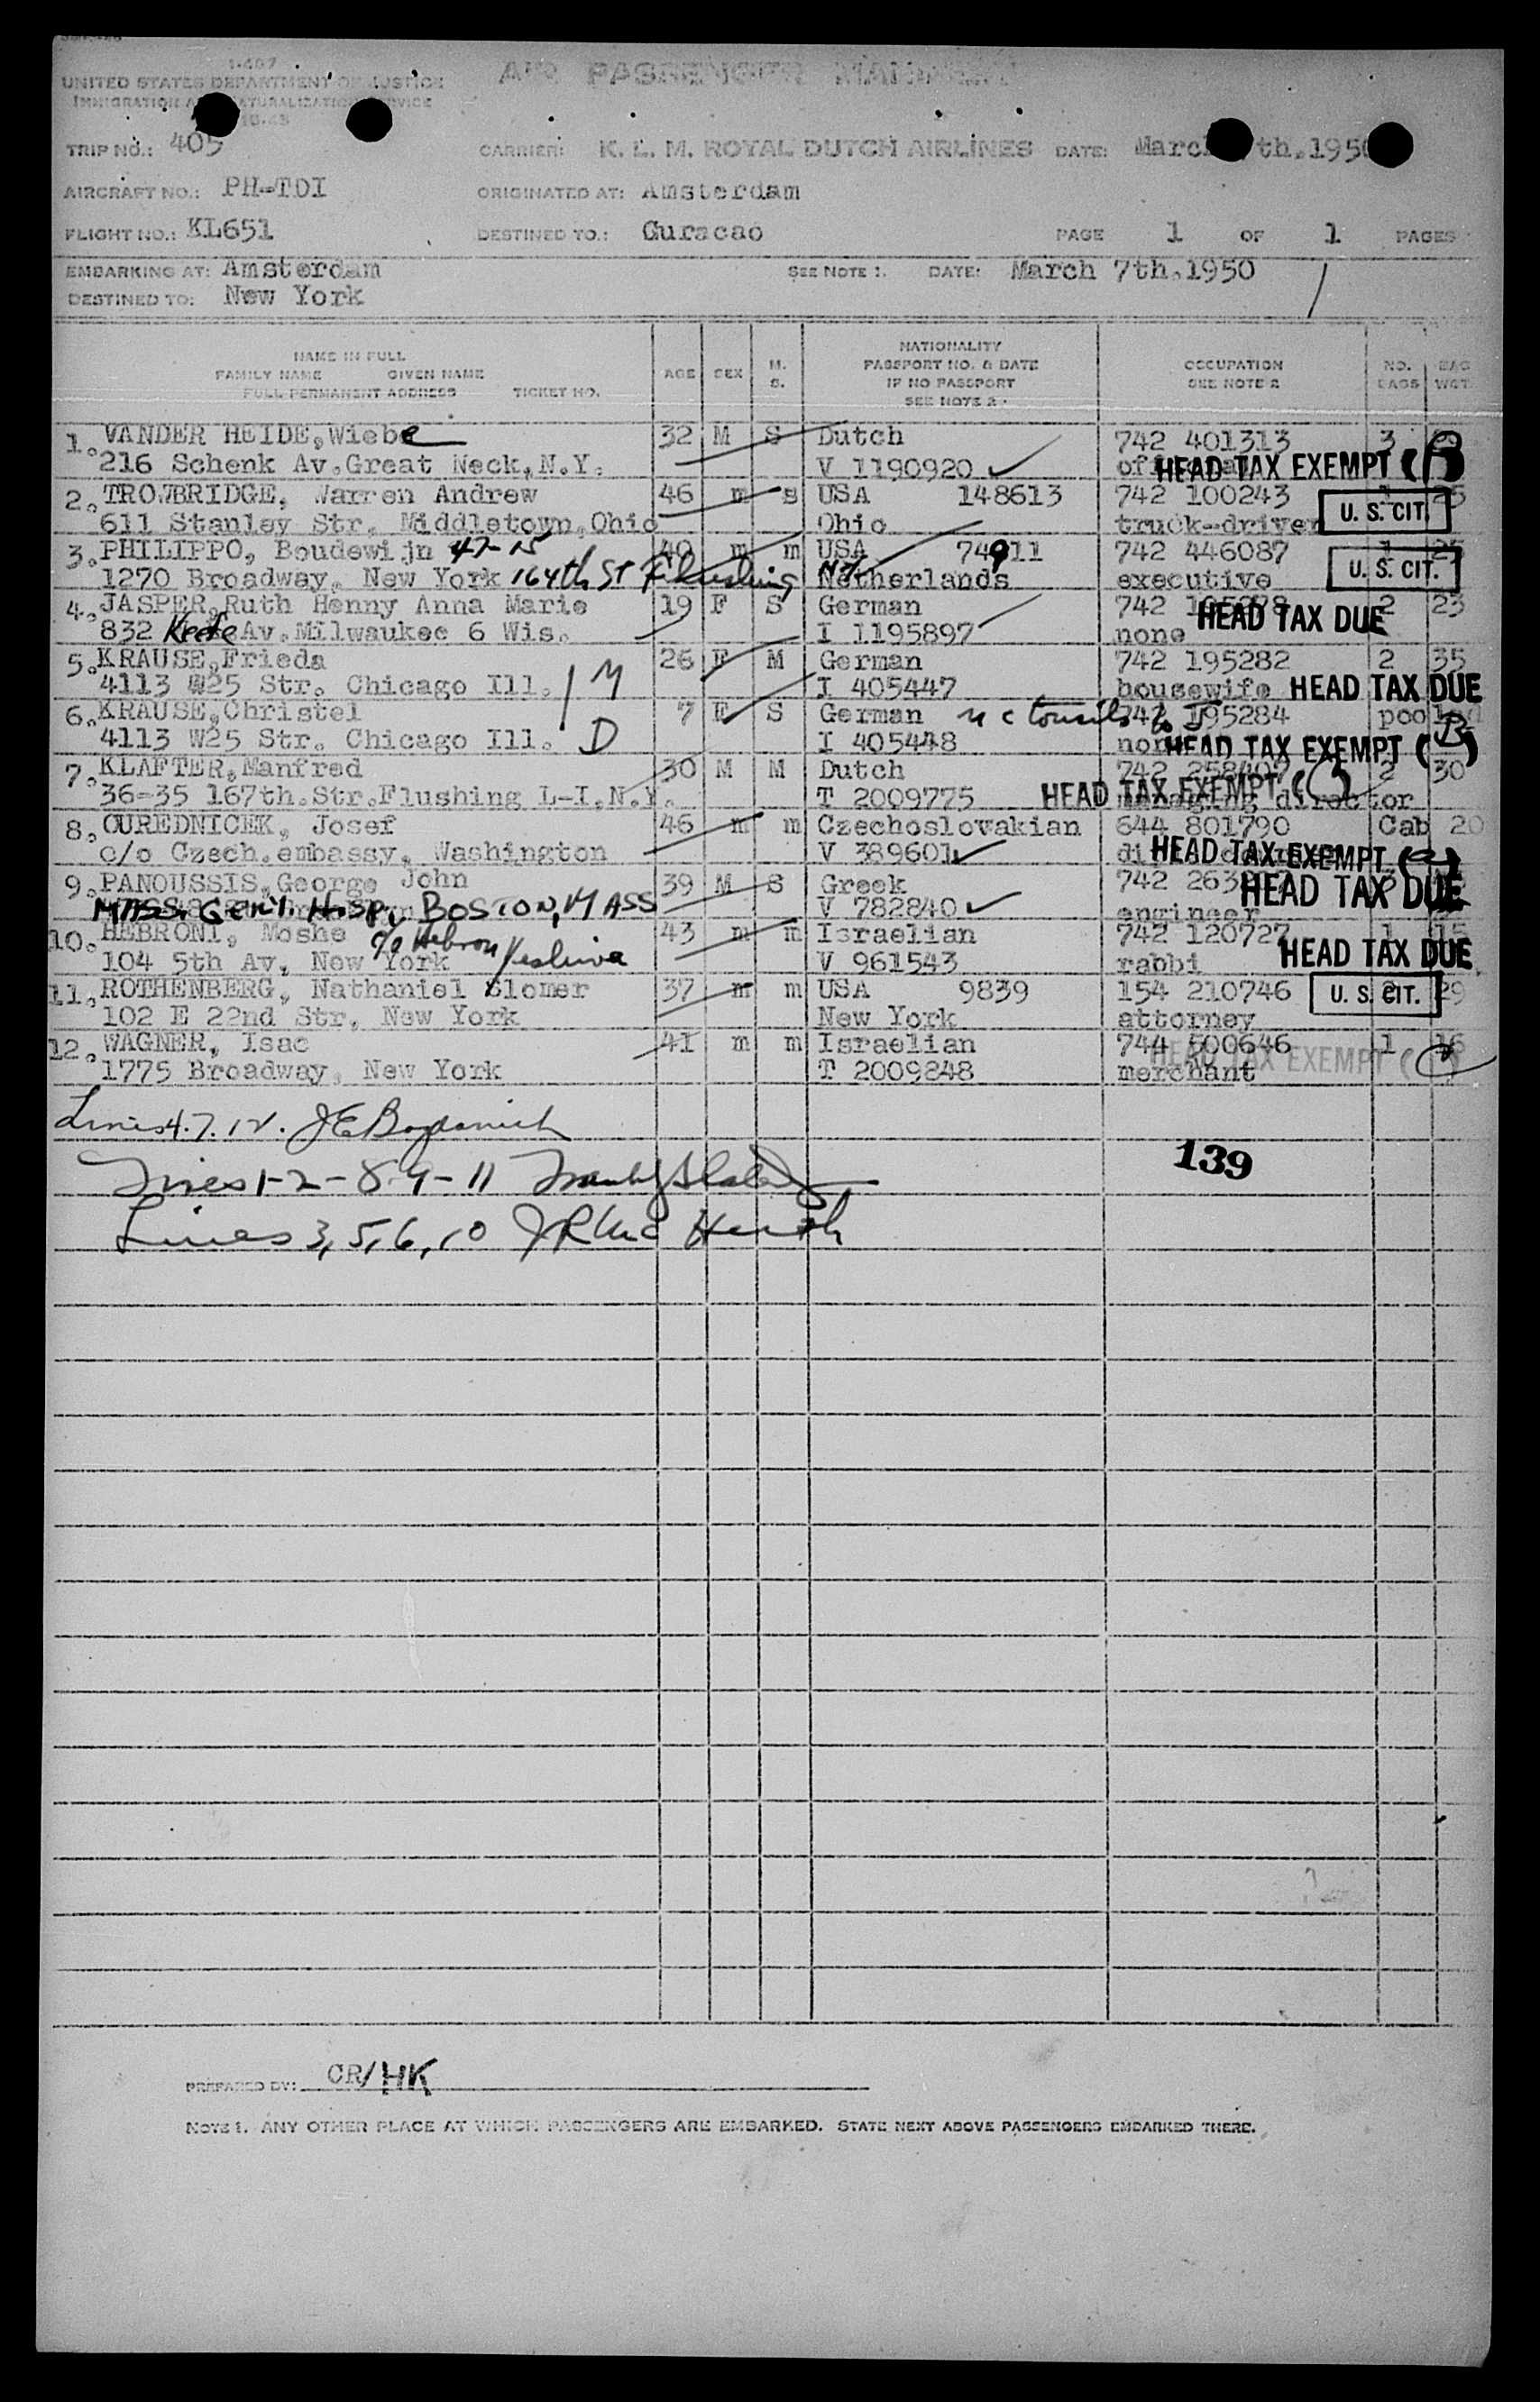 I-407
UNITED STATES DEPARTMENT OF JUSTICE
AIR PASSENGER MANIFEST
IMMIGRATION AND NATURALIZATION SERVICE
TRIP NO.: 405 CARRIER: K. L. M. ROYAL DUTCH AIRLINES DATE: March 7th.1950
AIRCRAFT NO.: PH-TDI ORIGINATED AT: Amsterdam
FLIGHT NO.: KL651 DESTINED TO.: Curacao PAGE 1 OF 1 PAGES
EMBARKING AT: Amsterdam SEE NOTE 1. DATE: March 7th.1950
DESTINED TO: New York
NAME IN FULL
FAMILY NAME GIVEN NAME
FULL PERMANENT ADDRESS TICKET NO.
AGE SEX M. S.
NATIONALITY
PASSPORT NO. & DATE
IF NO PASSPORT
SEE NOTE 2
OCCUPATION
SEE NOTE 2
NO. BAGS BAG WGT.
1. VANDER HEIDE, Wiebe 32 M S Dutch 742 401313 3
216 Schenk Av.Great Neck, N.Y. V 1190920 HEAD TAX EXEMPT (B)
2. TROWBRIDGE, Warren Andrew 46 m s USA 148613 742 100243 1 25
611 Stanley Str, Middletown, Ohio Ohio truck-driver U. S. CIT.
3. PHILIPPO, Boudewijn 47-15 40 m m USA 74911 742 446087 1 25
1270 Broadway, New York 164th ST Flushing NY Netherlands executive U. S. CIT.
4. JASPER, Ruth Henny Anna Marie 19 F S German 742 2 23
832 Keefe Av.Milwaukee 6 Wis. I 1195897 none HEAD TAX DUE
5. KRAUSE, Frieda 26 F M German 742 195282 2 35
4113 W25 Str. Chicago Ill. M I 405447 housewife HEAD TAX DUE
6. KRAUSE, Christel 7 F S German 742 195284 pooled
4113 W25 Str. Chicago Ill. D I 405448 none HEAD TAX EXEMPT (B)
7. KLAFTER, Manfred 30 M M Dutch 742 258407 2 30
36-35 167th.Str.Flushing L-I.N.Y. T 2009775 managing director HEAD TAX EXEMPT (C)
8. OUREDNICEK, Josef 46 m m Czechoslovakian 644 801790 Cab 20
c/o Czech.embassy, Washington V 389601 HEAD TAX EXEMPT (a)
9. PANOUSSIS, George John 39 M S Greek 742 3
MASS. Gen'l. Hosp, BOSTON, MASS V 782840 engineer HEAD TAX DUE
10. HEBRONI, Moshe c/o Hebron Yeshiva 43 m m Israelian 742 120727 1 15
104 5th Av, New York V 961543 rabbi HEAD TAX DUE
11. ROTHENBERG, Nathaniel Slomer 37 m m USA 9839 154 210746 2 29
102 E 22nd Str, New York New York attorney U. S. CIT.
12. WAGNER, Isac 41 m m Israelian 744 500646 1 16
1775 Broadway, New York T 2009848 merchant HEAD TAX EXEMPT (C)
Lines 4.7.12. J E Bogdanich
139
Lines 1-2-8-9-11
Lines 3, 5, 6, 10
PREPARED BY: CR/HK
NOTE 1. ANY OTHER PLACE AT WHICH PASSENGERS ARE EMBARKED. STATE NEXT ABOVE PASSENGERS EMBARKED THERE.